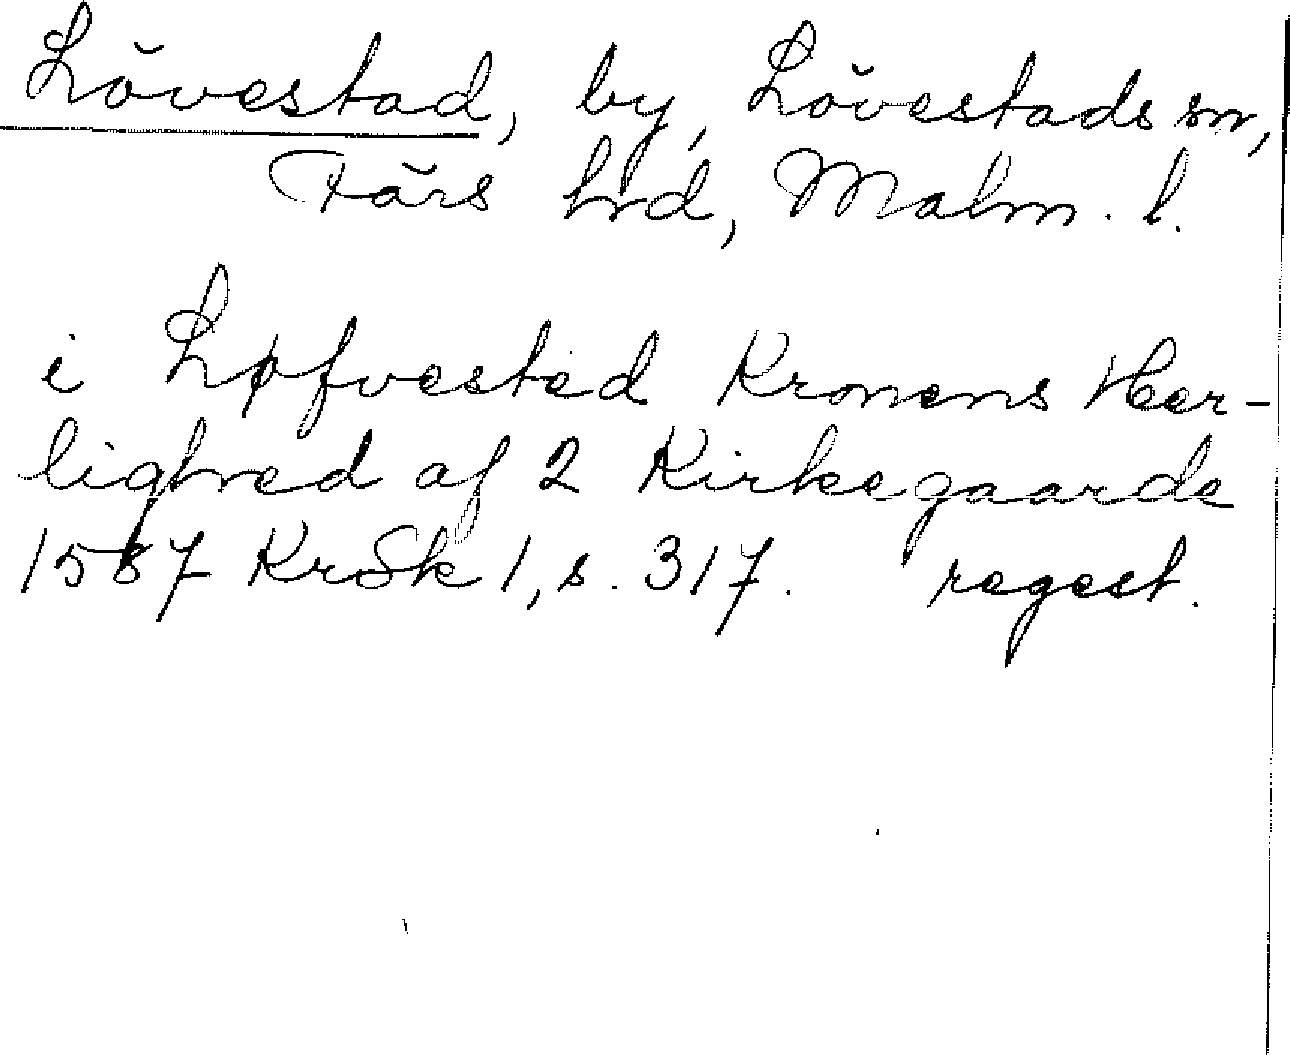 Lövestad, by, Lövestads sn,
Färs hrd, Malm. l.
i Løfvested Kronens Her-
lighed af 2 Kirkegaarde
1587 KrSk 1, s. 317. regest.